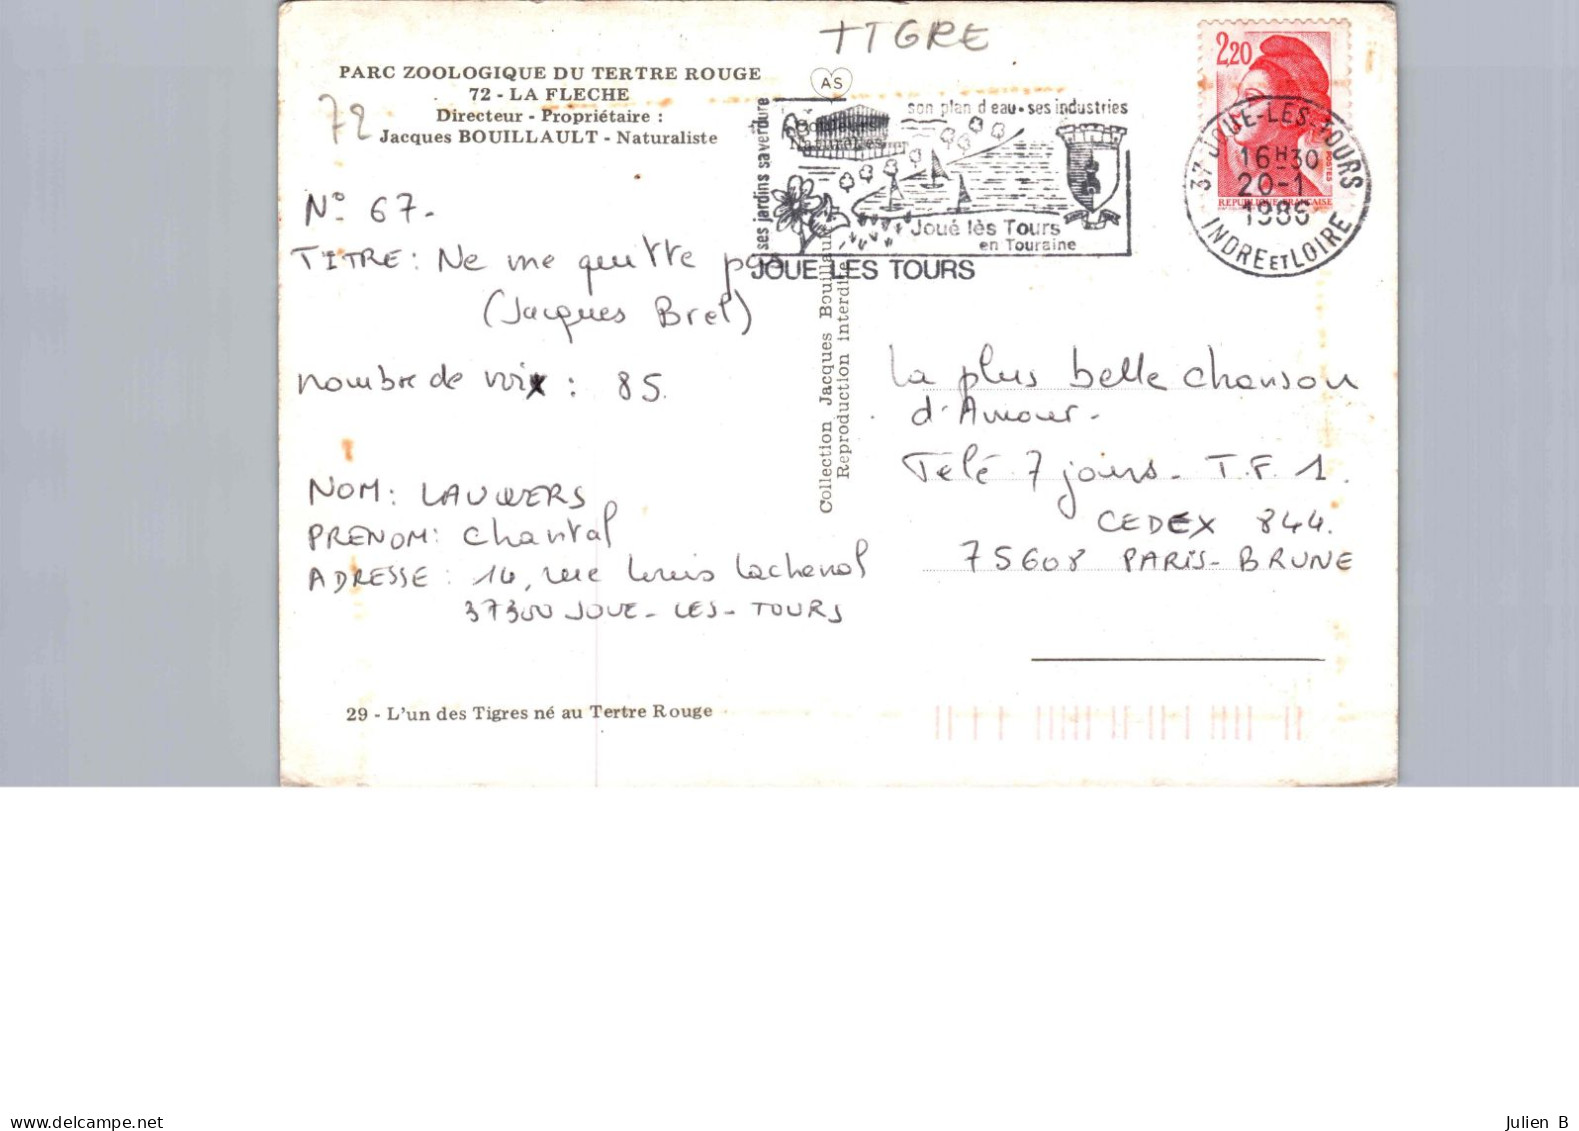 +TIGRE
PARC ZOOLOGIQUE DU TERTRE ROUGE
72 - LA FLECHE
Directeur - Propriétaire :
Jacques BOUILLAULT - Naturaliste
72
AS
son plan d'eau • ses industries
ses jardins sa verdure
Joué lès Tours
en Touraine
JOUE LES TOURS
2,20
REPUBLIQUE FRANÇAISE
POSTES
37 JOUE-LES-TOURS
16H30
20-1
1986
INDRE ET LOIRE
N° 67.
TITRE : Ne me quitte pas
(Jacques Brel)
nombre de voix : 85.
NOM : LAUWERS
PRENOM : Chantal
ADRESSE : 14, rue Louis Lachenal
37300 JOUE-LES-TOURS
Collection Jacques Bouillault
Reproduction interdite
La plus belle chanson
d'Amour-
Télé 7 jours - T.F.1.
CEDEX 844.
75608 PARIS-BRUNE
29 - L'un des Tigres né au Tertre Rouge
www.delcampe.net
Julien B